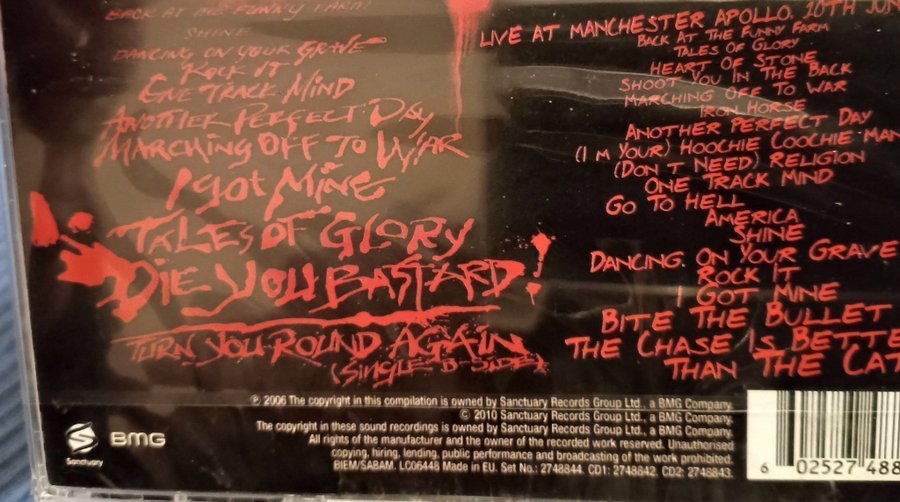 BACK AT THE FUNNY FARM
SHINE
DANCING ON YOUR GRAVE
ROCK IT
ONE TRACK MIND
ANOTHER PERFECT DAY
MARCHING OFF TO WAR
I GOT MINE
TALES OF GLORY
DIE YOU BASTARD!
TURN YOU ROUND AGAIN
(SINGLE B-SIDE)
LIVE AT MANCHESTER APOLLO, 10TH JUN
BACK AT THE FUNNY FARM
TALES OF GLORY
HEART OF STONE
SHOOT YOU IN THE BACK
MARCHING OFF TO WAR
IRON HORSE
ANOTHER PERFECT DAY
(I M YOUR) HOOCHIE COOCHIE MAN
(DON T NEED) RELIGION
ONE TRACK MIND
GO TO HELL
AMERICA
SHINE
DANCING ON YOUR GRAVE
ROCK IT
I GOT MINE
BITE THE BULLET
THE CHASE IS BETTE
THAN THE CAT
℗ 2006 The copyright in this compilation is owned by Sanctuary Records Group Ltd., a BMG Company.
© 2010 Sanctuary Records Group Ltd., a BMG Company.
The copyright in these sound recordings is owned by Sanctuary Records Group Ltd., a BMG Company.
All rights of the manufacturer and the owner of the recorded work reserved. Unauthorised
copying, hiring, lending, public performance and broadcasting of the work prohibited.
BIEM/SABAM. LC06448 Made in EU. Set No.: 2748844. CD1: 2748842. CD2: 2748843.
Sanctuary
BMG
6 02527 488